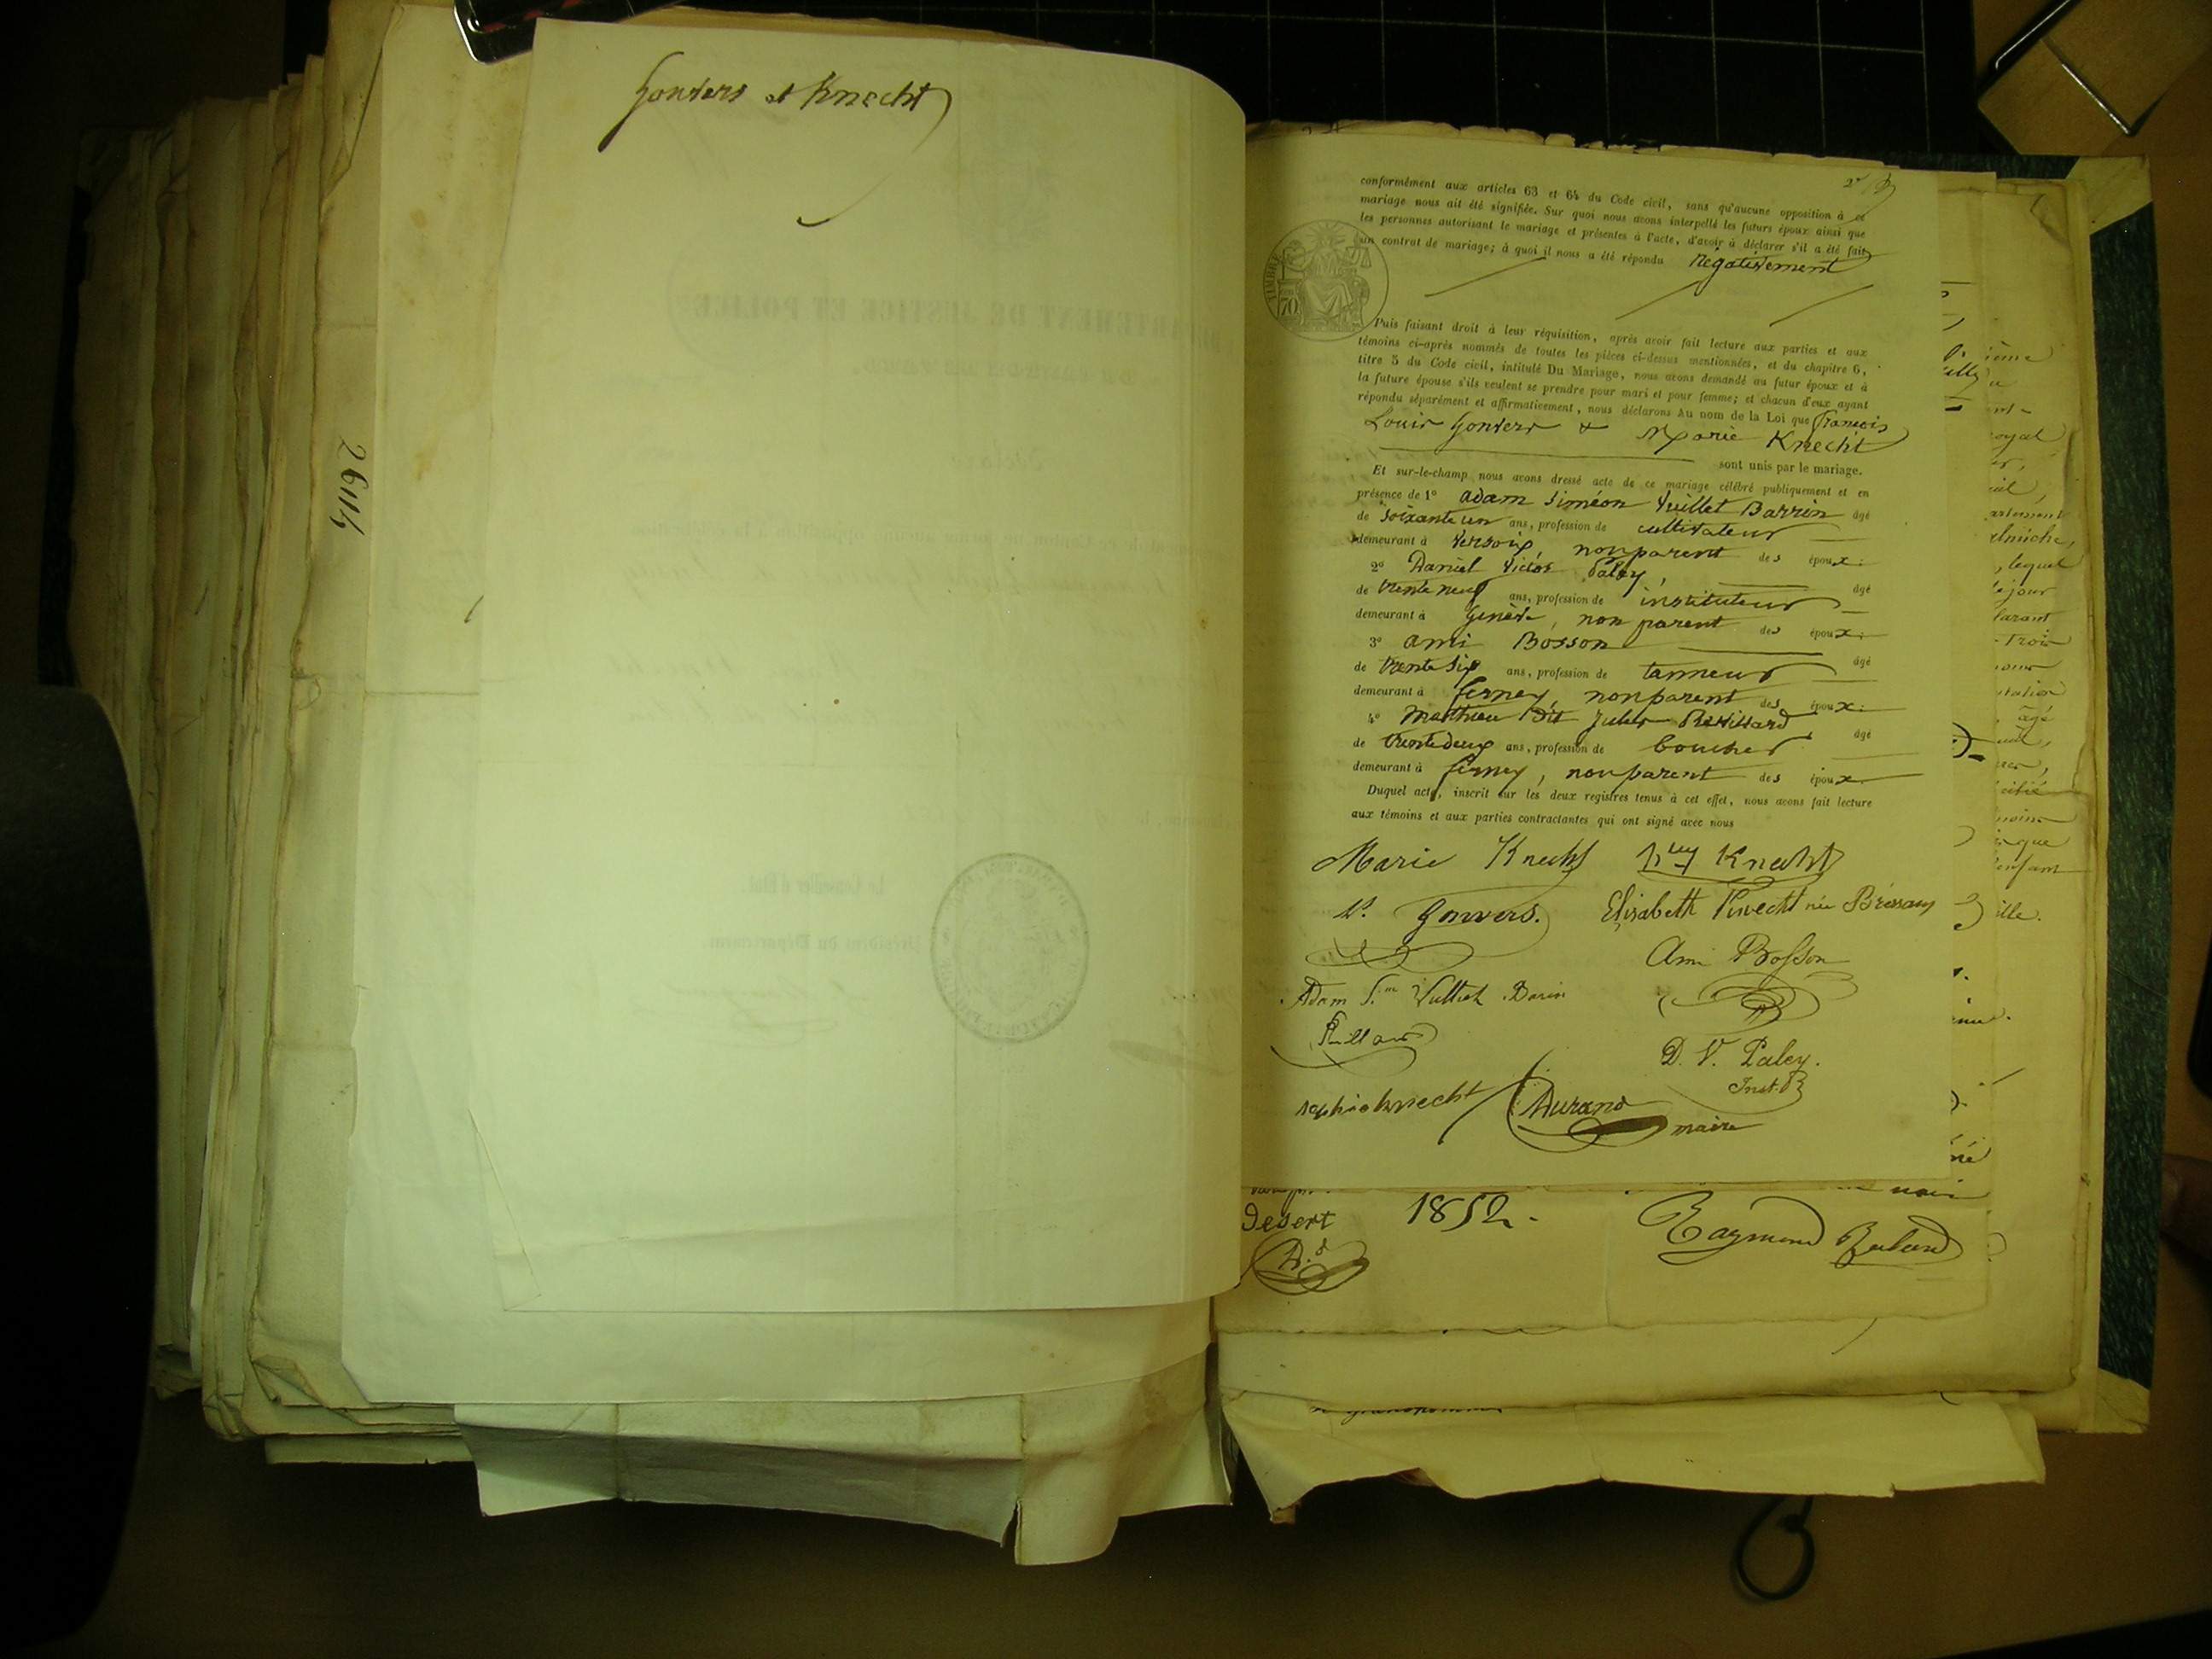 Gonvers et Knecht
26114
conformément aux articles 63 et 64 du Code civil, sans qu'aucune opposition à ce
mariage nous ait été signifiée. Sur quoi nous avons interpellé les futurs époux ainsi que
les personnes autorisant le mariage et présentes à l'acte, d'avoir à déclarer s'il a été fait
un contrat de mariage; à quoi il nous a été répondu négativement
TIMBRE
70
Puis faisant droit à leur réquisition, après avoir fait lecture aux parties et aux
témoins ci-après nommés de toutes les pièces ci-dessus mentionnées, et du chapitre 6,
titre 5 du Code civil, intitulé Du Mariage, nous avons demandé au futur époux et à
la future épouse s'ils veulent se prendre pour mari et pour femme; et chacun d'eux ayant
répondu séparément et affirmativement, nous déclarons Au nom de la Loi que François
Louis Gonvers & Marie Knecht
sont unis par le mariage.
Et sur-le-champ nous avons dressé acte de ce mariage célébré publiquement et en
présence de 1° Adam Siméon Vuillet Barrin âgé
de soixante un ans, profession de cultivateur
demeurant à Versoix, non parent des époux.
2° Daniel Victor Paley, âgé
de trente neuf ans, profession de instituteur
demeurant à Genève, non parent des époux.
3° Ami Bosson âgé
de trente six ans, profession de tanneur
demeurant à Ferney, non parent des époux.
4° Matthieu Dit Jules Revillard âgé
de trente deux ans, profession de boucher
demeurant à Ferney, non parent des époux.
Duquel acte, inscrit sur les deux registres tenus à cet effet, nous avons fait lecture
aux témoins et aux parties contractantes qui ont signé avec nous
Marie Knecht Hry Knecht
Ls. Gonvers. Elisabeth Knecht née
Ami Bosson
Adam S.m Vulliet Barin
D. V. Paley.
Inst.
Sophie Knecht Durand
maire
Desert 1852.
Raymond